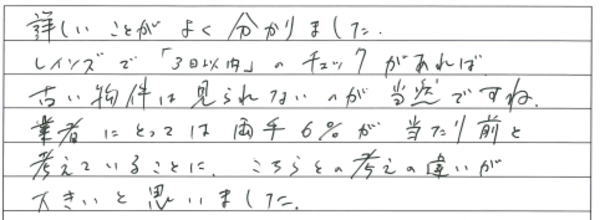 詳しいことがよく分かりました.
レインズで「3日以内」のチェックがあれば
古い物件は見られないのが当然ですね.
業者にとっては両手6%が当たり前と
考えていることに、こちらとの考えの違いが
大きいと思いました.